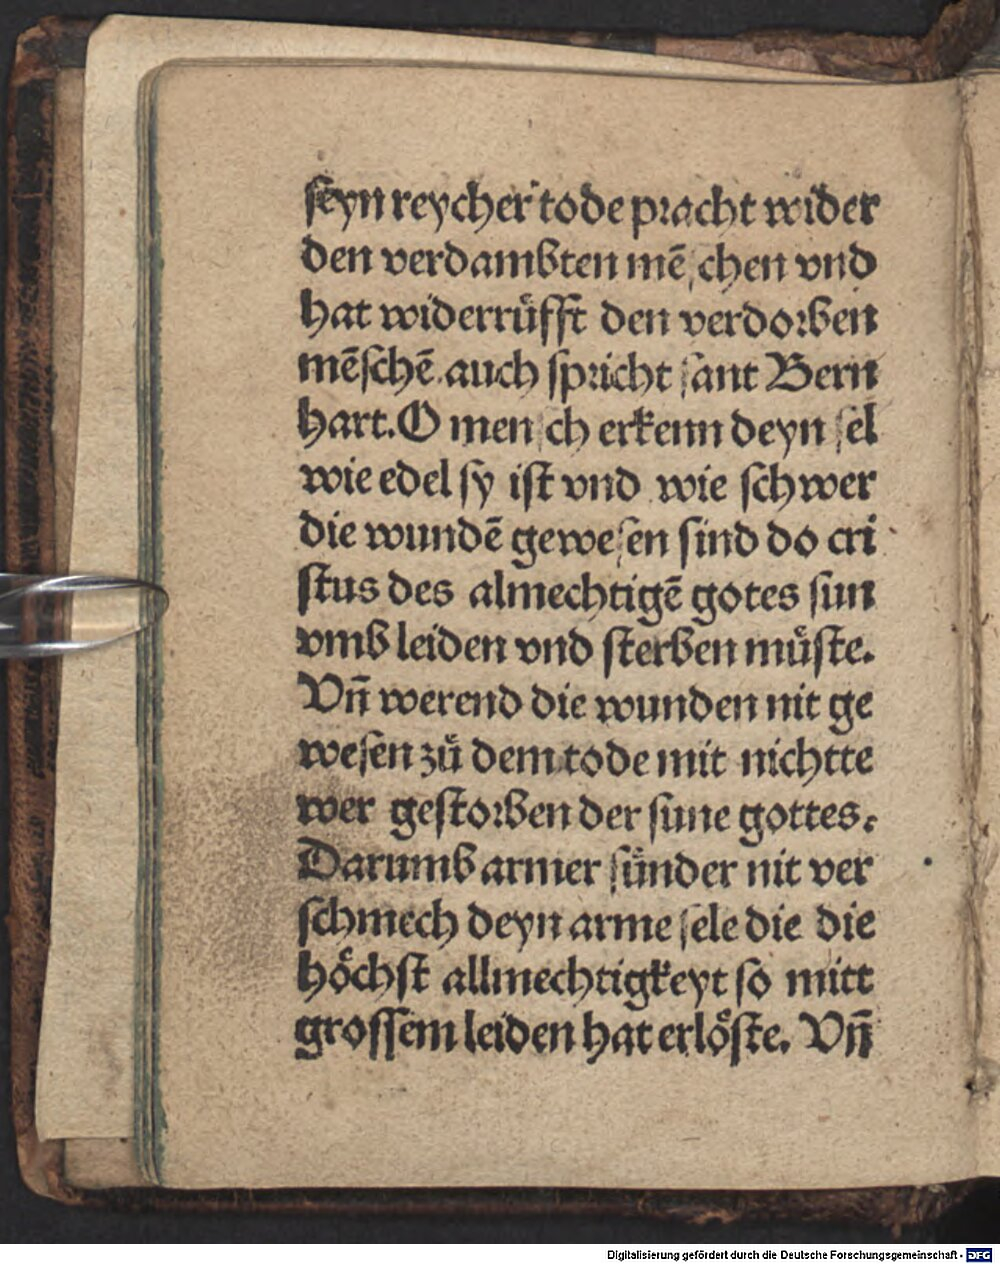 ſeyn reycher tode pracht wider
den verdambten mē ſchen vnd
hat widerruͤfft den verdorben
mēſchē. auch ſpricht ſant Bern
hart. O men ſch erkenn deyn ſel
wie edel ſy iſt vnd wie ſchwer
die wundē geweſen ſind do cri
ſtus des almechtigē gotes ſun
vmb leiden vnd ſterben muͤſte.
Vn̄ werend die wunden nit ge
weſen zuͤ dem tode mit nichtte
wer geſtorben der ſune gottes.
Darumb armer ſuͤnder nit ver
ſchmech deyn arme ſele die die
hoͤchſt allmechtigkeyt ſo mitt
groſſem leiden hat erloͤſte. Vn̄
Digitalisierung gefördert durch die Deutsche Forschungsgemeinschaft - DFG